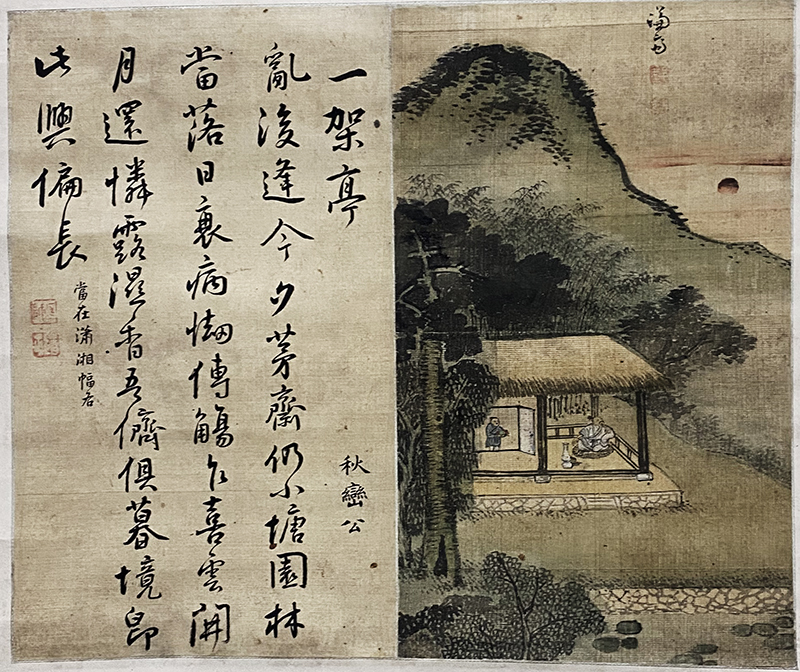 謙齋
一架亭
秋巒公
亂後逢今夕茅齋仍小塘園林
當落日衰病㤼傳觴乍喜雲開
月還憐露濕香吾儕俱暮境卽
此興偏長
當在瀟湘幅右